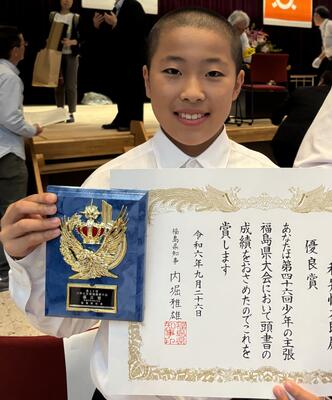 優良賞
あなたは第四十六回少年の主張
福島県大会において頭書の
成績をおさめたのでこれを
賞します
令和六年九月二十六日
福島県知事 内堀雅雄